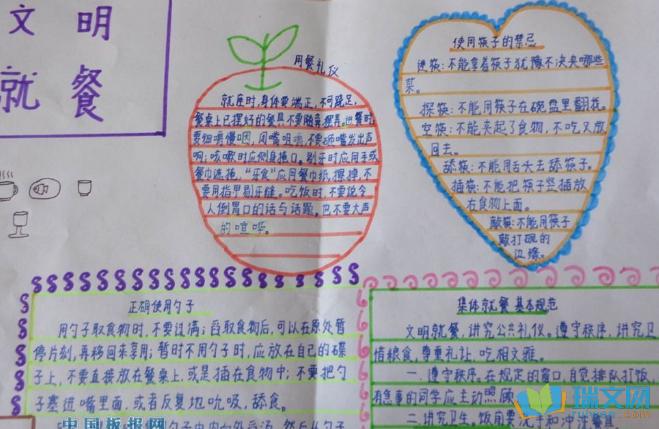 文明
就餐
用餐礼仪
就座时,身体要端正,不可跷足,
餐桌上已摆好的餐具不要随意摆弄。进餐时
要细嚼慢咽,闭嘴咀嚼,不要砸嘴发出声
响;咳嗽时应侧身掩口。剔牙时应用手或
餐巾遮掩,“牙食”应用餐巾纸擦掉,不
要用指甲剔牙缝。吃饭时,不要说令
人倒胃口的话与话题。也不要大声
的喧哗。
使用筷子的禁忌
迷筷:不能拿着筷子犹豫不决夹哪些
菜。
探筷:不能用筷子在碗盘里翻找。
空筷:不能夹起了食物,不吃又放
回去。
舔筷:不能用舌头去舔筷子。
插筷:不能把筷子竖插放
在食物上面。
敲筷:不能用筷子
敲打碗的
边缘。
正确使用勺子
用勺子取食物时,不要过满;舀取食物后,可以在原处暂
停片刻,再移回来享用;暂时不用勺子时,应放在自己的碟
子上,不要直接放在餐桌上,或是插在食物中;不要把勺
子塞进嘴里面,或者反复地吮吸、舔食。
集体就餐基本规范
文明就餐,讲究公共礼仪。遵守秩序,讲究卫
惜粮食,尊重礼让,吃相文雅。
一.遵守秩序。在规定的窗口,自觉排队打饭,
有急事的同学应主动照顾
二.讲究卫生。饭用要洗手和冲洗餐具
中国板报网
瑞文网